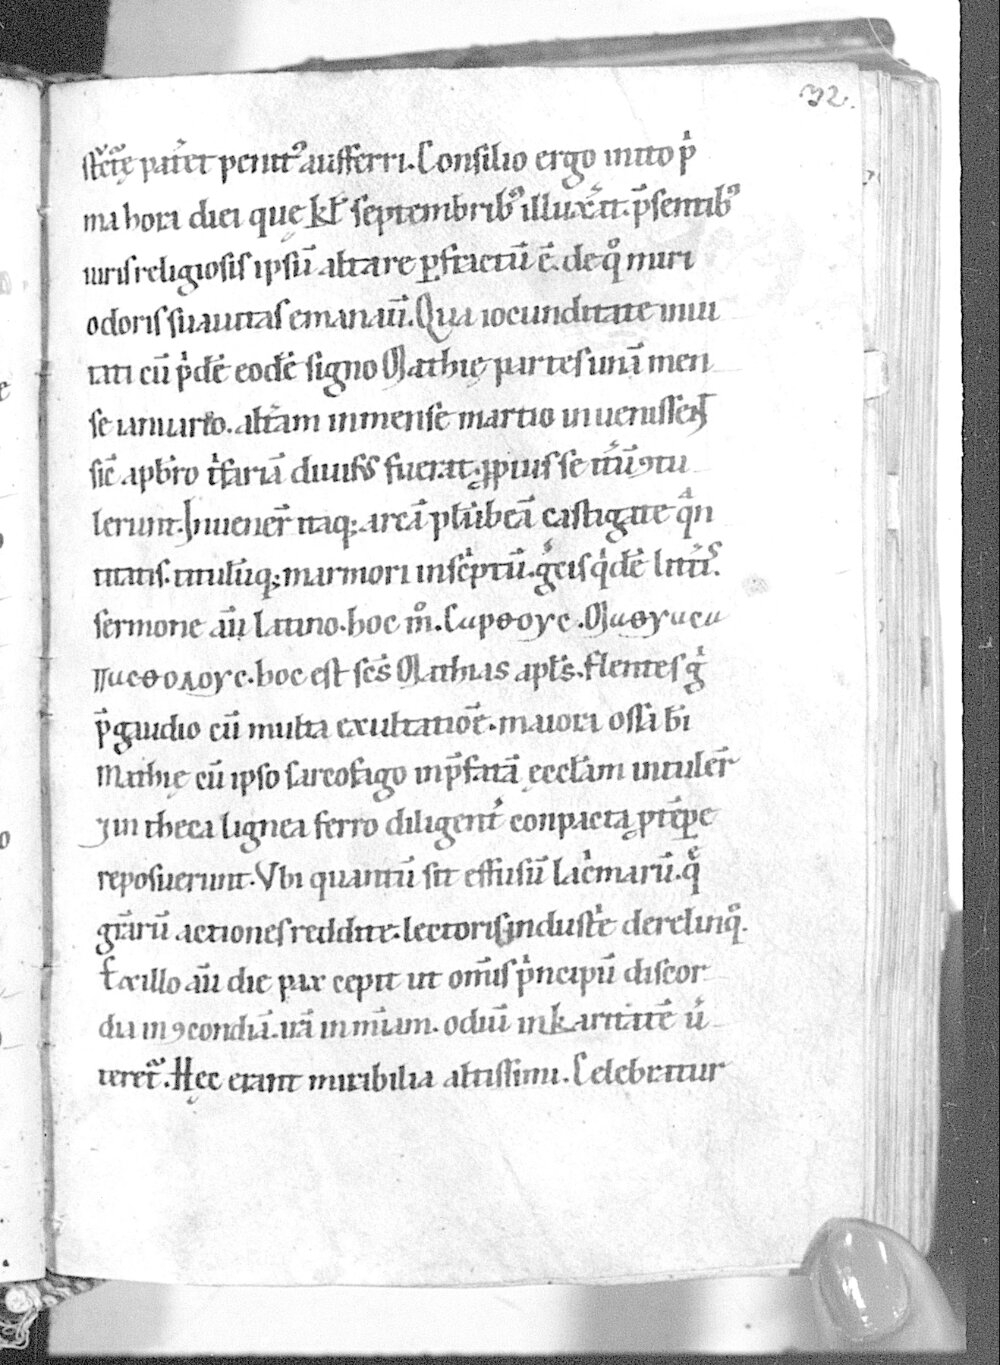 32.
str̄ctę pat̄et penit᷒ aufferri. Consilio ergo inito p̓
ma hora diei quę kł septembrib᷒ illux̄it. p̄sentib᷒
uiris religiosis ipsū altare p̱fractū ē. de q̊ miri
odoris suauitas emanauī. Qua iocunditate inui
tati cū p̓dc̄ē eodē signo Mathię partes unā men
se ianuario. alt̄am in mense martio inueniss&
sic̄ a pb̄ro t̓fariā diuisus fuerat. ꝓpius se itūꝯtu
lerunt. Inuener̄ itaq; arcā plūbeā castigate q̄n
titatis. titulūq; marmori insc̓ptū. g̓cis q̓dē litt̄is.
sermone aū latino. hoc m̊. Cαρθογc. Mαθγαcα
παcθολογc. hoc est sc̄s Mathias apl̄s. flentes g̓
p̄ gaudio cū multa exultatiōe. maiora ossa b̄i
Mathię cū ipso sarcofago in p̄fatā ęccl̄am intuler̄
⁊ in theca lignea ferro diligent̄ conpacta ꝓpt̄e p̱pe
reposuerunt. Vbi quantū sit effusū lac̓marū. q̄
gr̄arū actiones reddite. lectoris industr̄ie derelinq̊.
Ex illo aū die pax cepit ut om̄is p̓ncipū discor
dia in ꝯcordiā. ira in mīam. odiū in karitatē ū
teret᷑. Hęc erant mirabilia altissimi. Celebratur